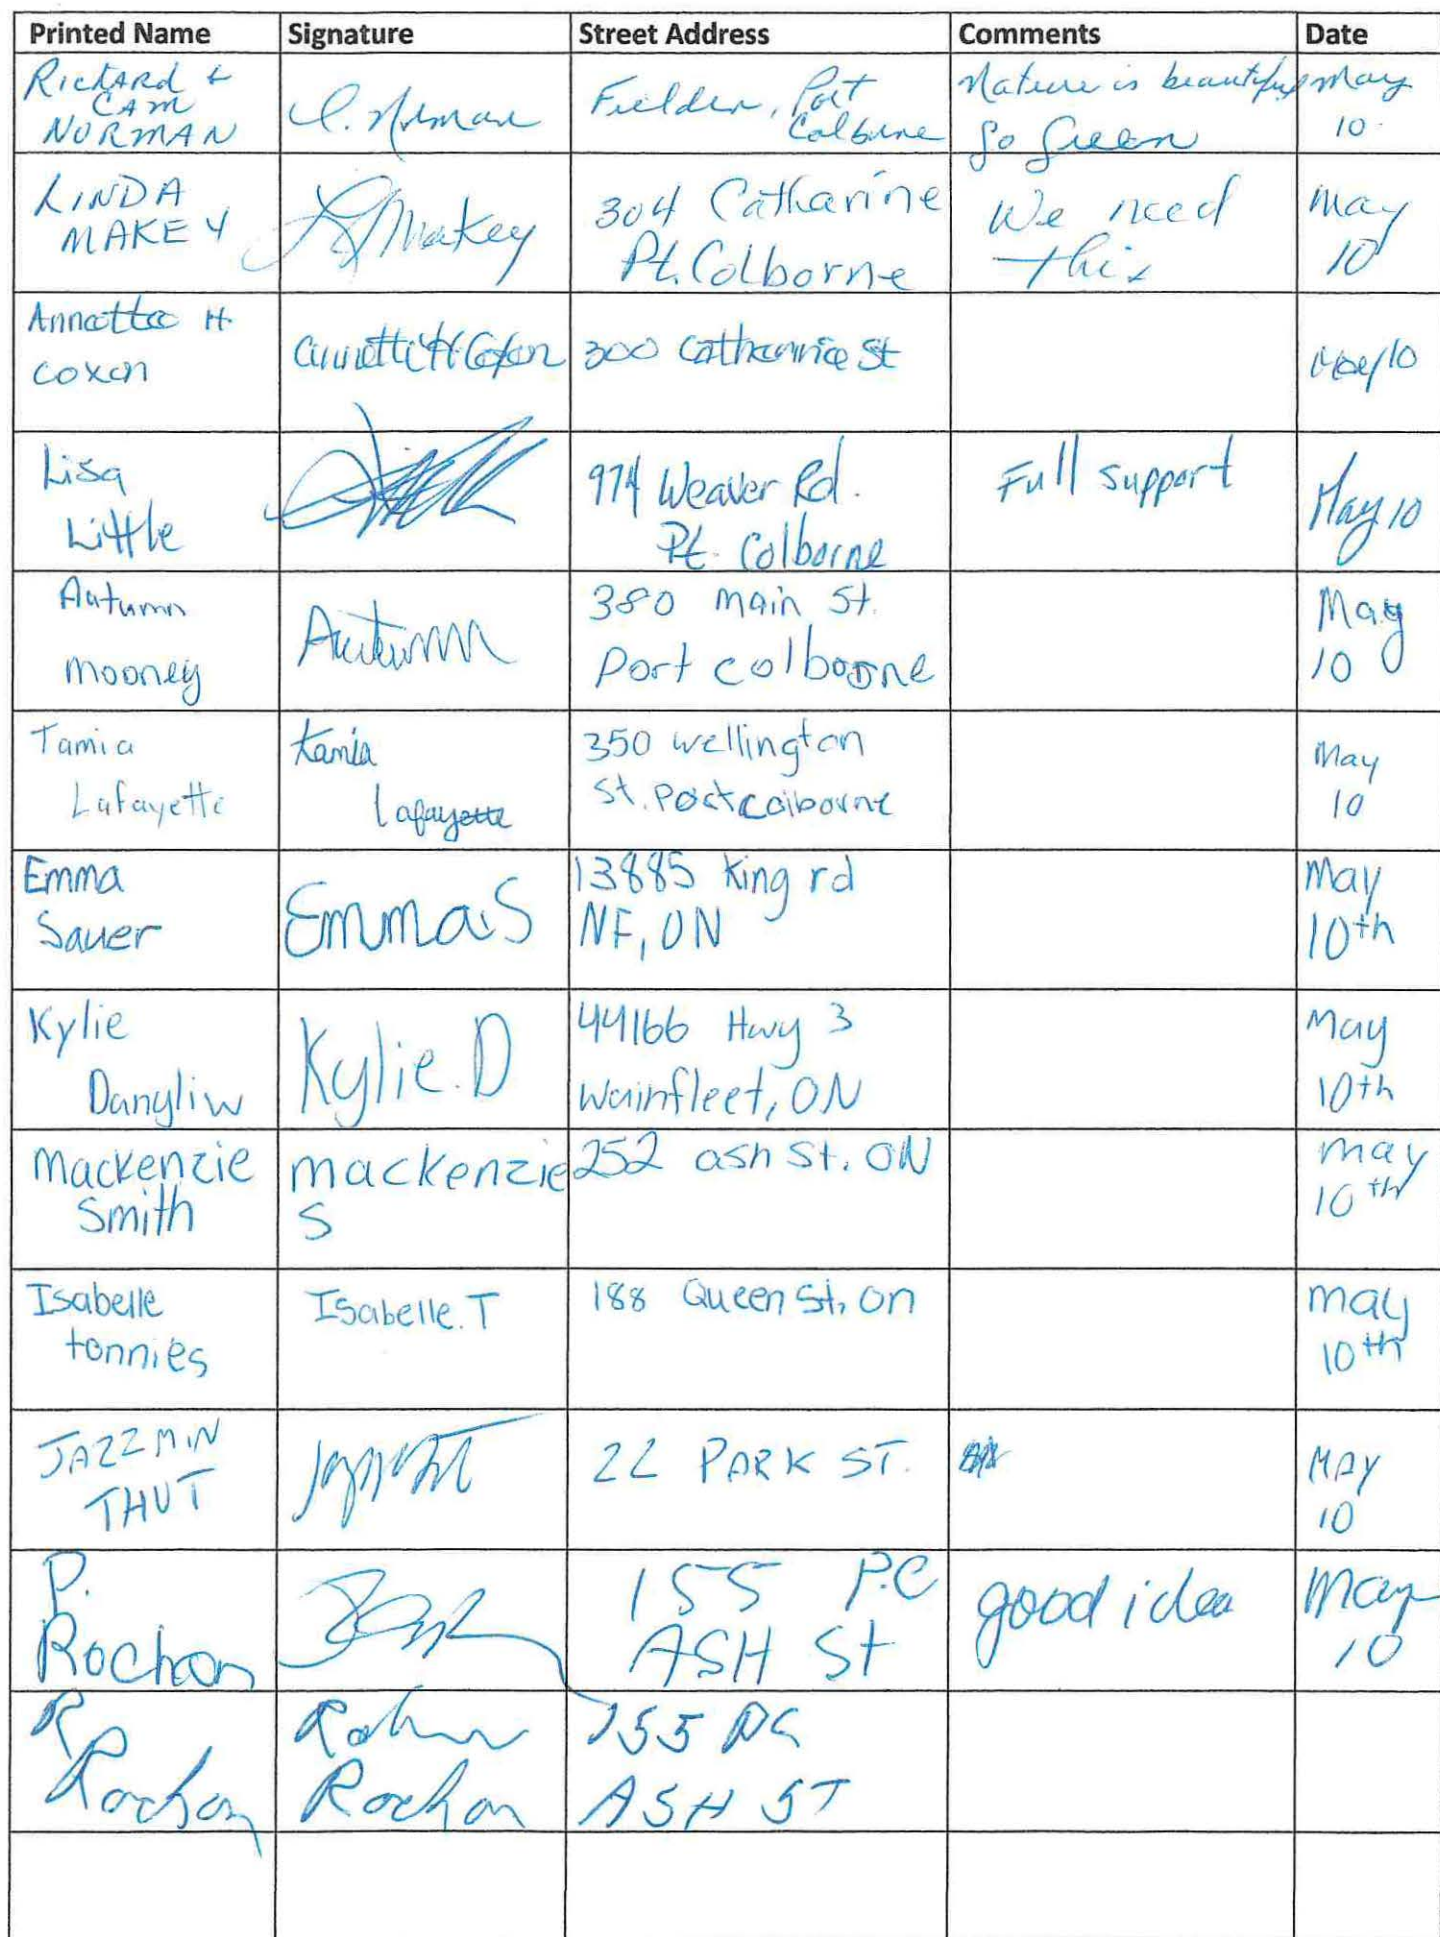 Printed Name Signature Street Address Comments Date
Richard &
CAM
NORMAN
C. Norman
Fielden, Port
Colborne
Nature is beautiful
Go Green
May
10
LINDA
MAKEY
L Makey
304 Catharine
Pt. Colborne
We need
this
May
10
Annette H.
Coxon
Annette H Coxon
300 Catharine St
May 10
Lisa
Little
974 Weaver Rd.
Pt. Colborne
Full support
May 10
Autumn
Mooney
Autumn
380 main St.
Port colborne
May
10
Tamia
Lafayette
tamia
lafayette
350 wellington
St. Port colborne
May
10
Emma
Sauer
Emma.S
13885 king rd
NF, ON
May
10th
Kylie
Danyliw
Kylie.D
44166 Hwy 3
Wainfleet, ON
May
10th
mackenzie
Smith
mackenzie
S
252 ash St. ON
may
10th
Isabelle
tonnies
Isabelle.T
188 Queen St, on
may
10th
JAZZMIN
THUT
22 PARK ST.
MAY
10
P.
Rochon
155 P.C
ASH St
good idea
May
10
R
Rochon
Rochon
155 PC
ASH ST